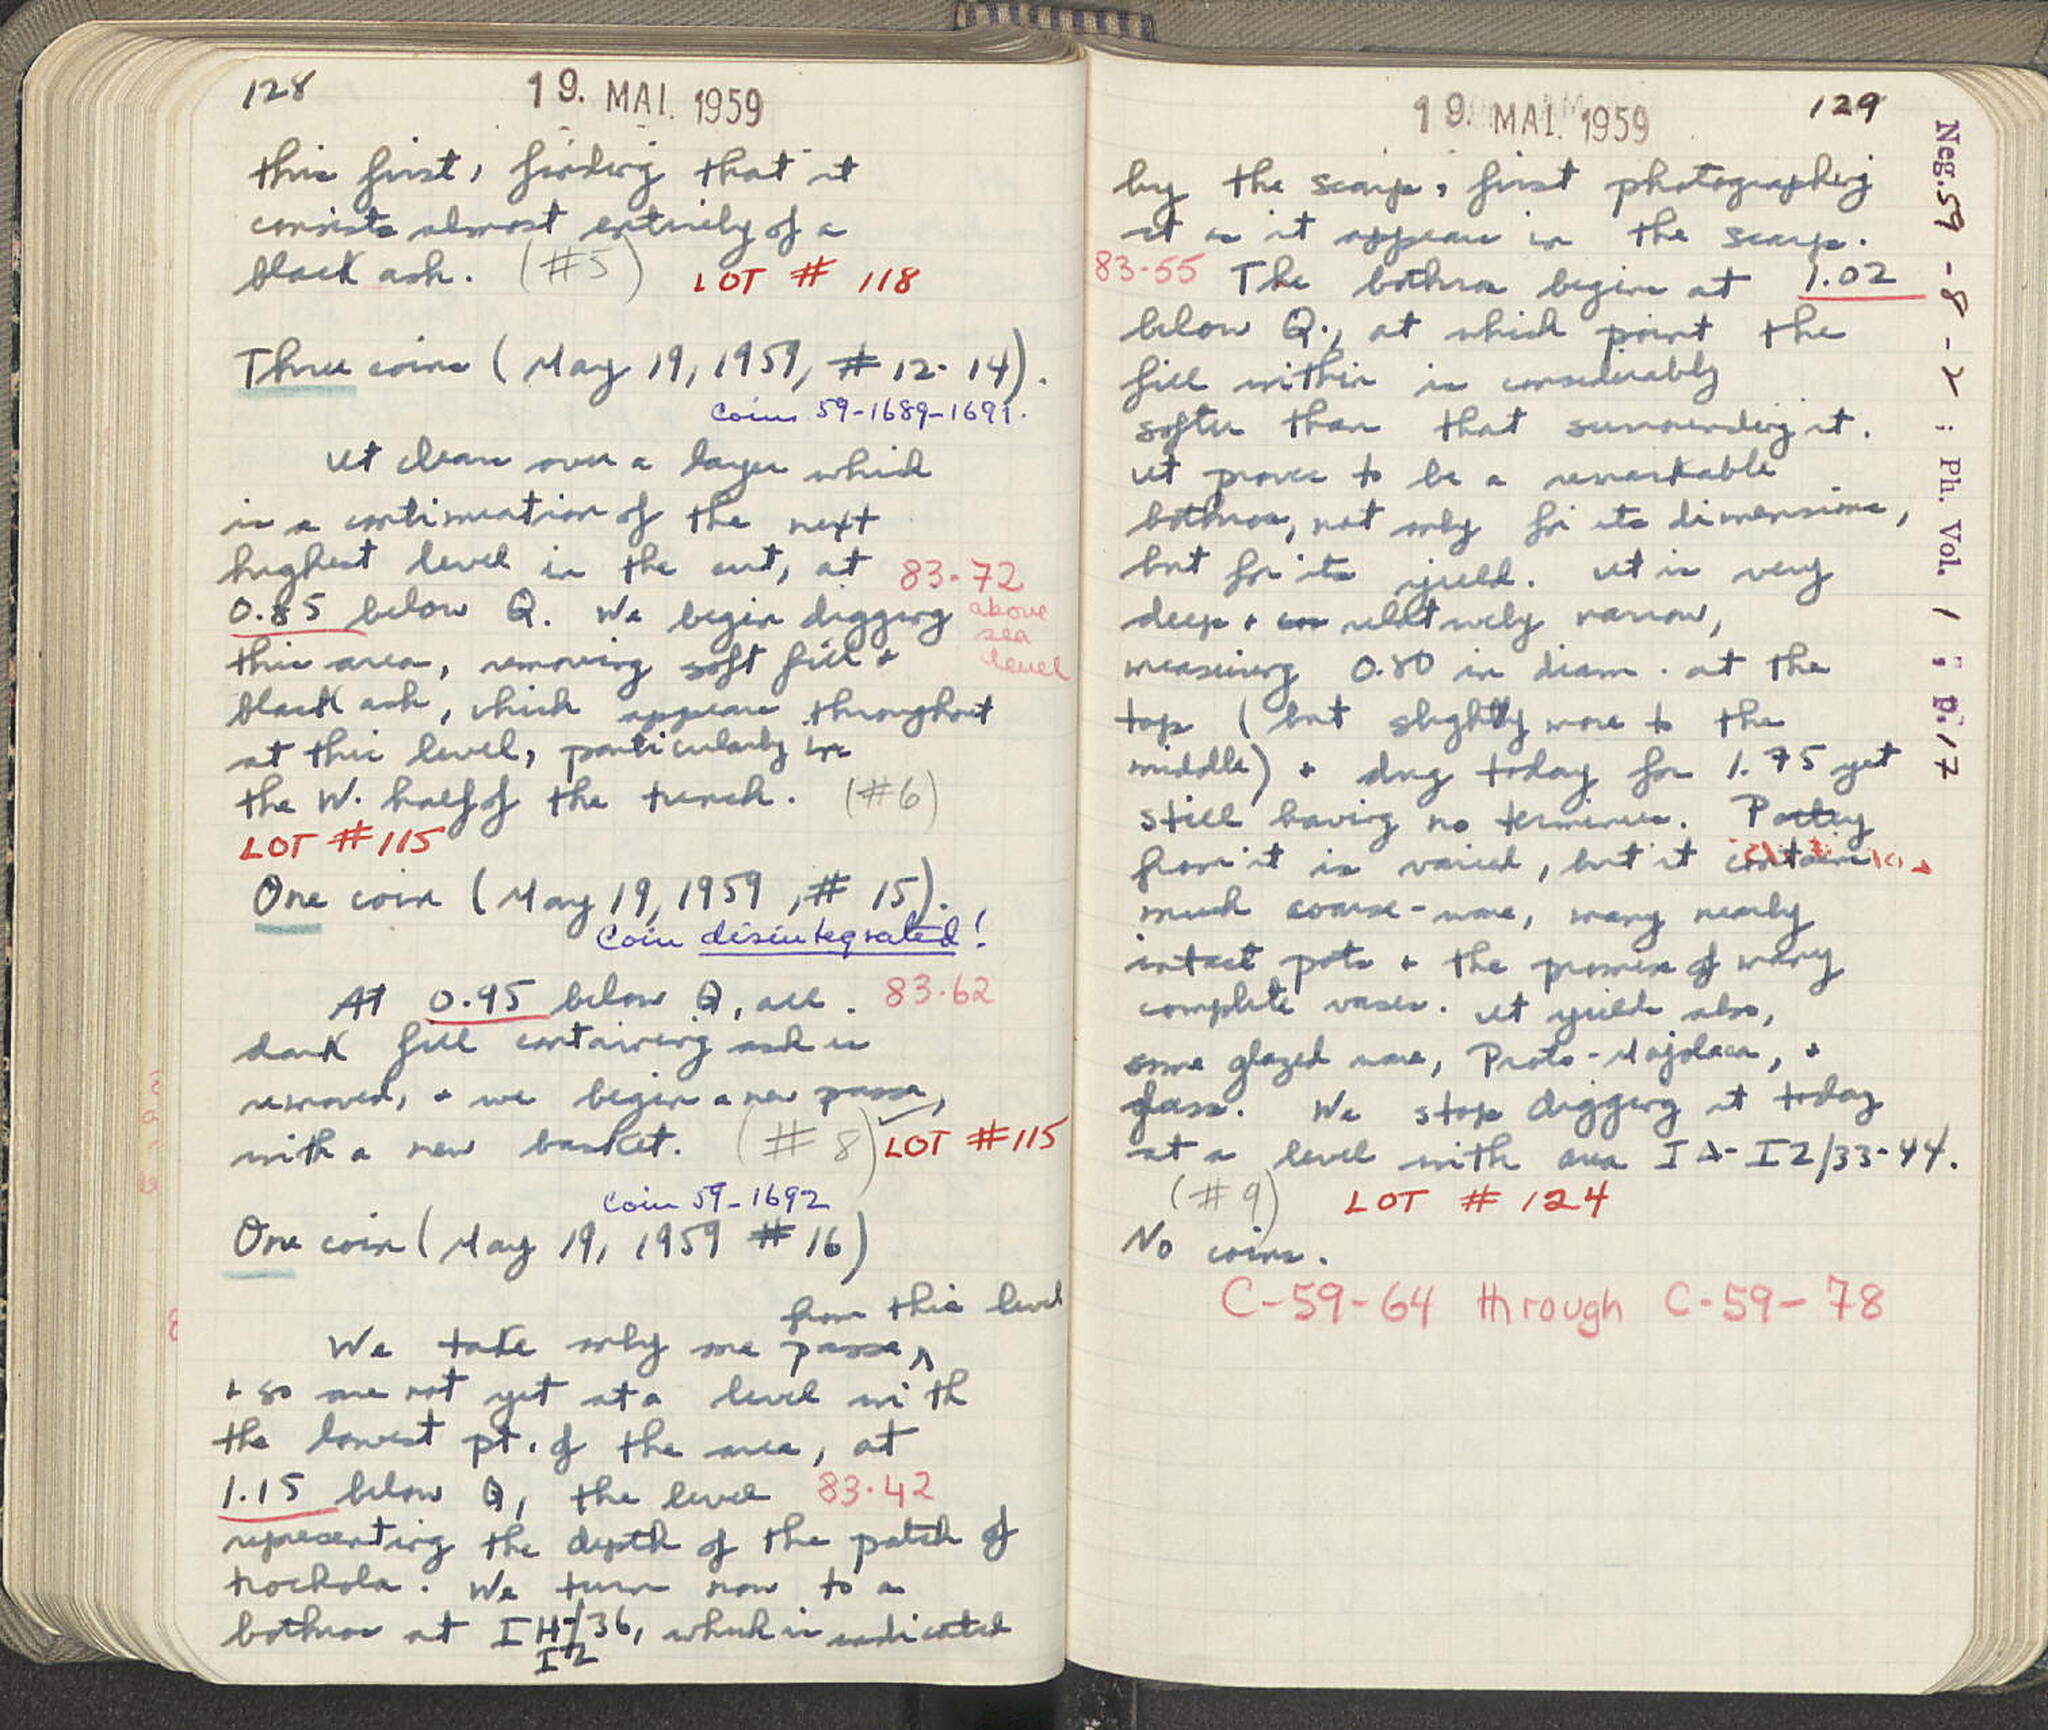 128
19. MAI. 1959
this first, finding that it
consists almost entirely of a
black ash. (#5) LOT # 118
Three coins (May 19, 1959, # 12-14).
Coins 59-1689-1691.
It cleans over a layer which
is a continuation of the next
highest level in the cut, at 83.72
0.85 below Q. We begin digging above
sea
this area, removing soft fill + level
black ash, which appears throughout
at this level, particularly in
the W. half of the trench. (#6)
LOT #115
One coin (May 19, 1959, # 15).
Coin disintegrated!
At 0.95 below Q, all 83.62
dark fill containing ash is
removed, + we begin a new passe,
with a new basket. (#8) LOT #115
Coin 59-1692
One coin (May 19, 1959 # 16)
from this level
We take only one passe ^
+ so are not yet at a level with
the lowest pt. of the area, at
1.15 below Q, the level 83.42
representing the depth of the patch of
trochola. We turn now to a
bothros at IH-/36, which is indicated
IZ
19. MAI. 1959
129
by the scarp, first photographing
it as it appears in the scarp.
83.55 The bothros begins at 1.02
below Q., at which point the
fill within is considerably
softer than that surrounding it.
It proves to be a remarkable
bothros, not only for its dimensions,
but for its yield. It is very
deep + relatively narrow,
measuring 0.80 in diam. at the
top (but slightly more to the
middle) + dug today for 1.75 yet
still having no terminus. Pottery
from it is varied, but it contains
much coarse-ware, many nearly
intact pots + the promise of many
complete vases. It yields also,
some glazed ware, Proto-Majolica, +
glass. We stop digging it today
at a level with area IΔ-IZ/33-44.
(#9) LOT # 124
No coins.
C-59-64 through C-59-78
Neg. 59-8-2 : Ph. Vol. 1 ; p. 17